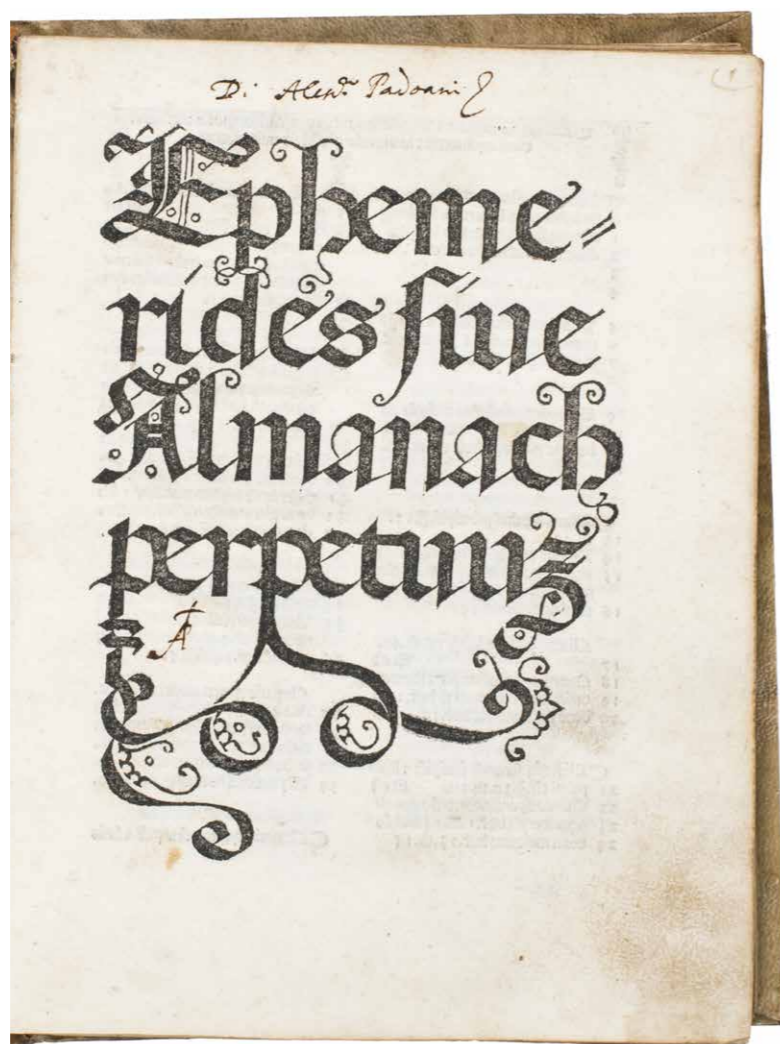 Di Alesn. Padoani
Epheme=
rides siue
Almanach
perpetuuz